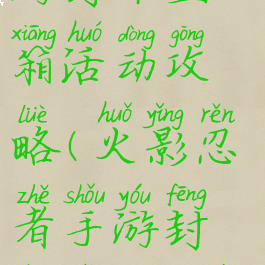 xiāng huó dòng gōng
箱活动攻
lüè huǒ yǐng rěn
略(火影忍
zhě shǒu yóu fēng
者手游封